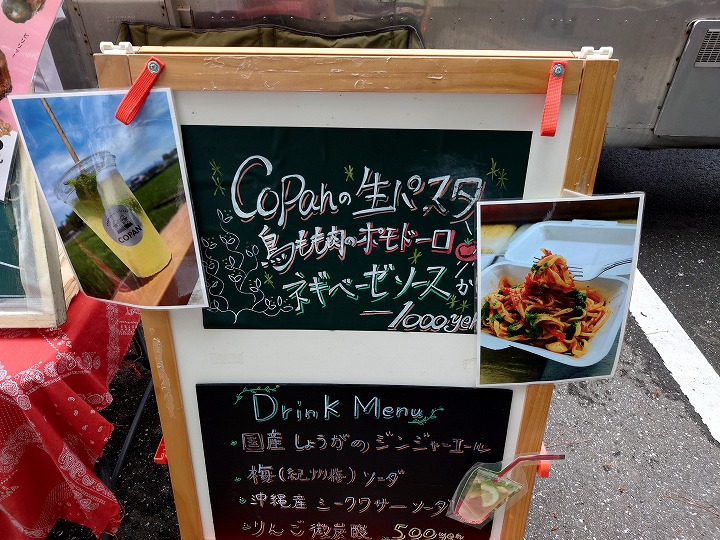 Copanの生パスタ
鳥もも肉のポモドーロ
ネギベーゼソース
1000yen
Drink Menu
国産しょうがのジンジャーエール
梅(紀州梅)ソーダ
沖縄産 シークワサーソーダ
りんご微炭酸 500yen
COPAN